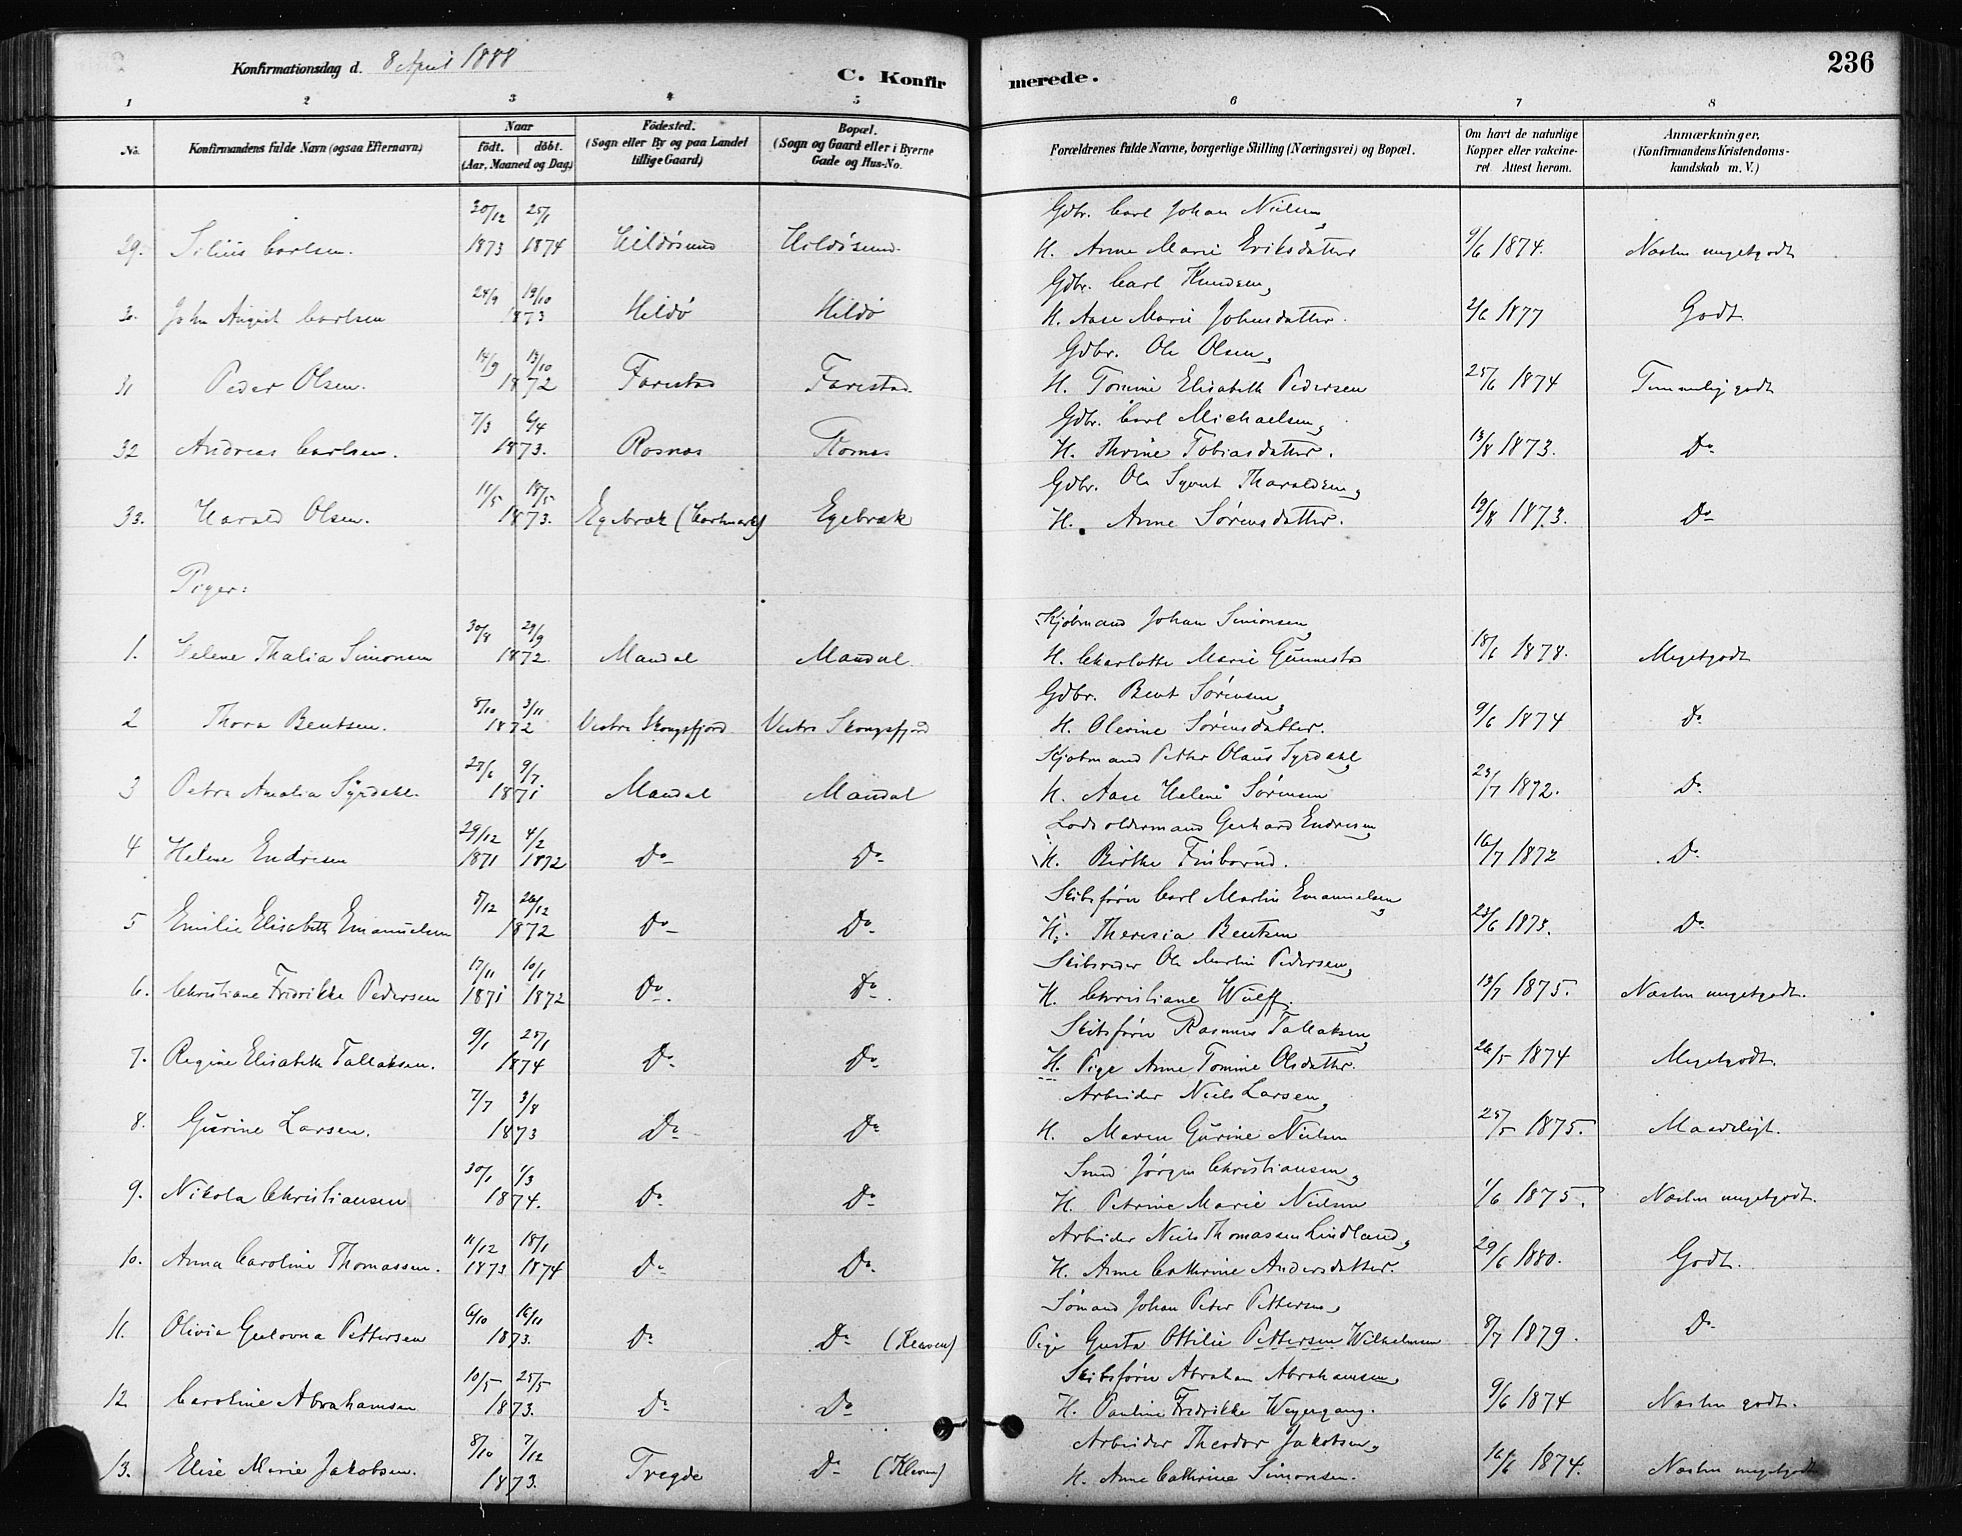 Konfirmationsdag d. 8 April 1888
C. Konfirmerede.
236
1 2 3 4 5 6 7 8
No. Konfirmandens fulde Navn (ogsaa Efternavn) Naar födt. döbt. (Aar, Maaned og Dag.) Födested. (Sogn eller By og paa Landet tillige Gaard) Bopæl. (Sogn og Gaard eller i Byerne Gade og Hus-No. Forældrenes fulde Navne, borgerlige Stilling (Næringsvei) og Bopæl. Om havt de naturlige Kopper eller vakcineret. Attest herom. Anmærkninger. (Konfirmandens Kristendomskundskab m. V.)
30/12 25/1 Gdbr. Carl Johan Nielsen,
29. Silius Carlsen. 1873 1874 Hildøsund Hildøsund. H. Anne Marie Eriksdatter 9/6 1874. Næsten megetgodt
24/9 19/10 Gdbr. Carl Knudsen,
John August Carlsen 1873 Hildø Hildø H. Aase Marie Johnsdatter. 2/6 1877 Godt
14/9 13/10 Gdbr. Ole Olsen,
31 Peder Olsen. 1872 Farestad Farestad. H. Tomine Elisabeth Pedersen 25/6 1874 Temmelig godt
7/3 6/4 Gdbr. Carl Michaelsen,
32 Andreas Carlsen. 1873. Rosnæs H. Thrine Tobiasdatter. 13/8 1873. Do
11/5 18/5 Gdbr. Ole Syvert Tharaldsen,
33. Harald Olsen. 1873. Egebræk Egebræk H. Anne Sørensdatter. 19/8 1873. Do
Piger:
30/8 29/9 Kjøbmand Johan Simonsen,
1. Helene Thalia Simonsen 1872. Mandal Mandal. H. Charlotte Marie Gunnestad 18/6 1878. Megetgodt
8/10 3/11 Gdbr. Bent Sørensen,
2 Thora Bentsen. 1872 Vestre Skogsfjord Vestre Skogsfjord H. Olerine Sørensdatter. 9/6 1874 Do
27/6 9/7 Kjøbmand Petter Olaus Syrdahl,
3 Petra Amalia Syrdahl. 1871 Mandal Mandal H. Aase Helene Sørensen 23/7 1872. Do
29/12 4/2 Lodsoldermand Gerhard Endresen,
4 Helene Endresen 1871 1872 Do Do H. Birthe Finborud. 16/7 1872 Do
5/12 26/12 Skibsfører Carl Martin Emanuelsen,
5 Emilie Elisabeth Emanuelsen 1872 Do Do H. Theresia Bentsen 23/6 1873. Do
17/11 10/1 Skibsreder Ole Martin Pedersen,
6. Christiane Fredrikke Pedersen 1871 1872 Do. Do. H. Christiane Wulff. 13/7 1875. Næsten megetgodt.
9/1 25/1 Skibsfører Rasmus Tallaksen,
7. Regine Elisabeth Tallaksen. 1874 Do Do H. Pige Anne Tomine Olsdatter. 26/5 1874 Megetgodt.
7/7 3/8 Arbeider Niels Larsen,
8. Gurine Larsen. 1873 Do Do H. Maren Gurine Nielsen 25/5 1875. Maadeligt.
30/1 1/3 Smed Jörgen Christiansen,
9. Nikola Christiansen 1874. Do Do H. Petrine Marie Nielsen 1/6 1875. Næsten megetgodt.
11/12 18/1 Arbeider Niels Thomassen Lindland,
10. Anna Caroline Thomassen. 1873 1874 Do Do H. Anne Cathrine Andersdatter. 29/6 1880. Godt.
6/10 16/11 Sömand Johan Peter Pettersen,
11. Olivia Gustovna Pettersen 1873. Do Do (Kleven) Pige Gusta Ottilie Pettersen Wilhelmsen 8/7 1879. Do
10/5 25/5 Skibsfører Abraham Abrahamsen,
12. Caroline Abrahamsen 1873. Do Do H. Pauline Fredrikke Weyergang. 9/6 1874 Næsten godt.
8/10 7/12 Arbeider Theodor Jakobsen,
13. Elise Marie Jakobsen. 1873. Tregde Do (Kleven) H. Anne Cathrine Simonsen. 16/6 1874. Næsten megetgodt